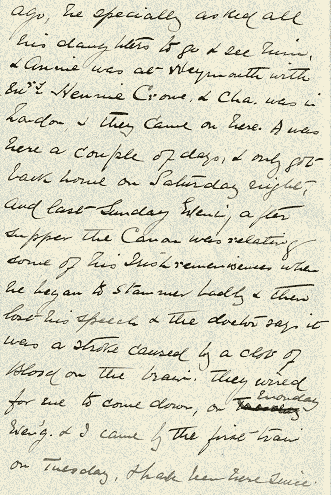 ago, he specially asked all
his daughters to go & see him,
& Annie was at Weymouth with
Mrs Hennie Crowe, & Cha. was in
London & they came on here. A was
here a couple of days, & only got
back home on Saturday night,
and last Sunday Eveni'g after
supper the Canon was relating
some of his Irish remeniscences when
he began to stammer badly & then
lost his speech & the doctor says it
was a stroke caused by a clot of
blood on the brain. They wired
for me to come down, on Tuesday Monday
Even'g. & I came by the first train
on Tuesday, & have been here since.